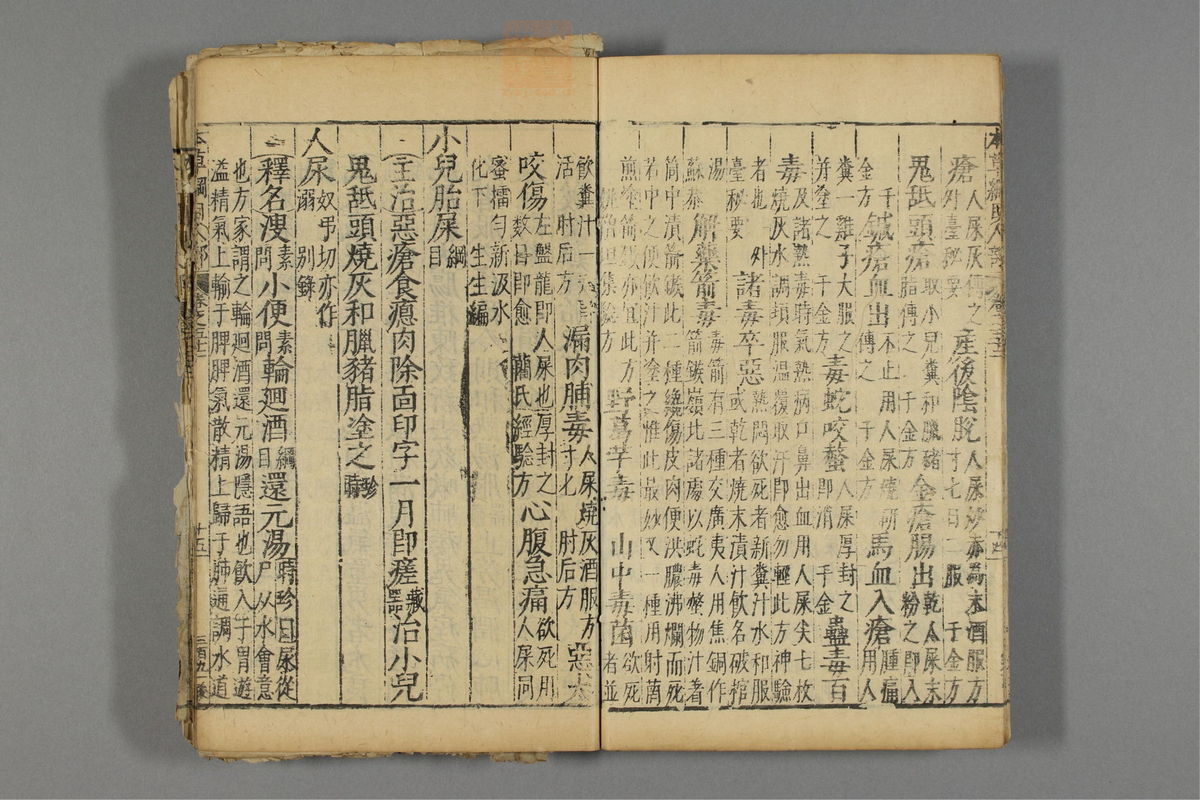 瘡
人屎灰傅之
外臺秘要
產後陰脫
人屎炒赤為末酒服方
寸七日二服 千金方
鬼舐頭瘡
取小兒糞和臘豬
脂傅之 千金方
金瘡腸出
乾人屎末
粉之即入
千
金方
鍼瘡血出
不止用人屎燒研
傅之 千金方
馬血入瘡
腫痛
用人
糞一雞子大服之
并塗之 千金方
毒蛇咬螫
人屎厚封之
即消 千金
蠱毒百
毒
及諸熱毒時氣熱病口鼻出血用人屎尖七枚
燒灰水調頓服溫覆取汗即愈勿輕此方神驗
者也 外
臺秘要
諸毒卒惡
熱悶欲死者新糞汁水和服
或乾者燒末漬汁飲名破棺
湯
蘇恭
解藥箭毒
毒箭有三種交廣夷人用焦銅作
箭鏃嶺北諸處以蛇毒螫物汁著
筒中漬箭鏃此二種纔傷皮肉便洪膿沸爛而死
若中之便飲汁并塗之惟此最妙又一種用射菌
煎塗箭鏃亦宜此方
姚僧坦集驗方
野葛芋毒
山中毒菌
欲死
者並
飲糞汁一
活 肘后方
漏肉脯毒
人屎燒灰酒服方
寸匕 肘后方
惡犬
咬傷
左盤龍即人屎也厚封之
數日即愈 藺氏經驗方
心腹急痛
欲死用
人屎同
蜜擂勻新汲水
化下 生生編
小兒胎屎
綱目
主治惡瘡食瘜肉除面印字一月即瘥
藏器
治小兒
鬼舐頭燒灰和臘豬脂塗之
時珍
人尿
奴弔切亦作
溺 別錄
釋名溲
素問
小便
素問
輪廻酒
綱目
還元湯
時珍曰尿從
尸从水會意
也方家謂之輪廻酒還元湯隱語也飲入于胃遊
溢精氣上輸于脾脾氣散精上歸于肺通調水道
本草綱目人部
卷之五十二
十五